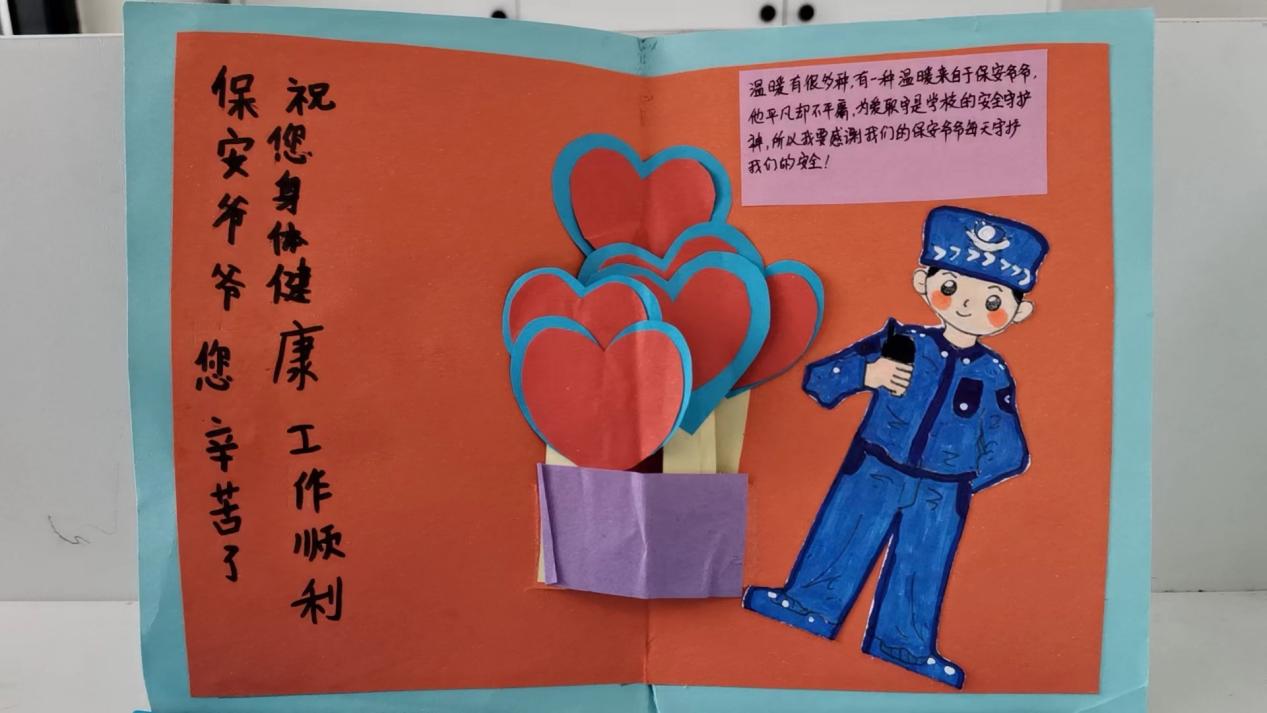 保安爷爷您辛苦了
祝您身体健康工作顺利
温暖有很多种,有一种温暖来自于保安爷爷,
他平凡却不平庸,为爱取守是学校的安全守护
神,所以我要感谢我们的保安爷爷每天守护
我们的安全!